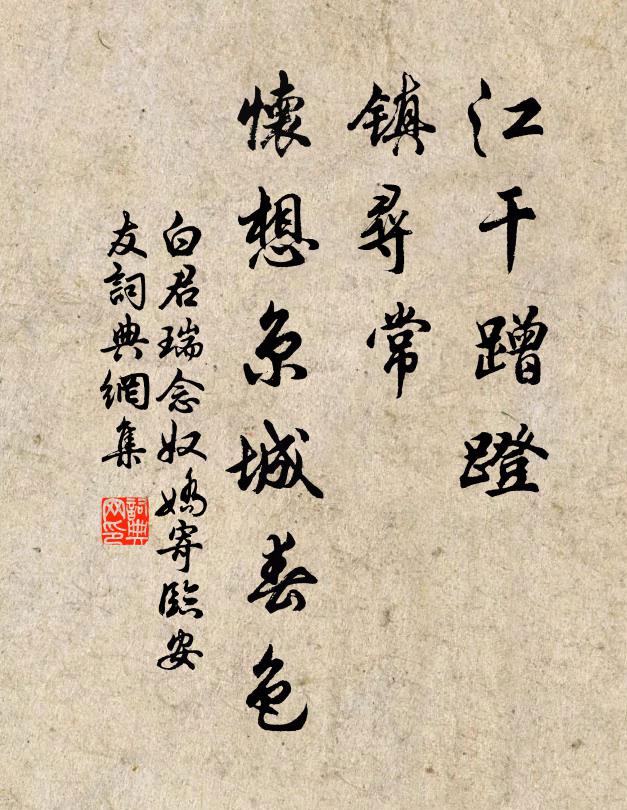 江干蹭蹬
鎮尋常
懷想京城春色
白君瑞念奴嬌寄臨安
友詞典網集
詞典网印